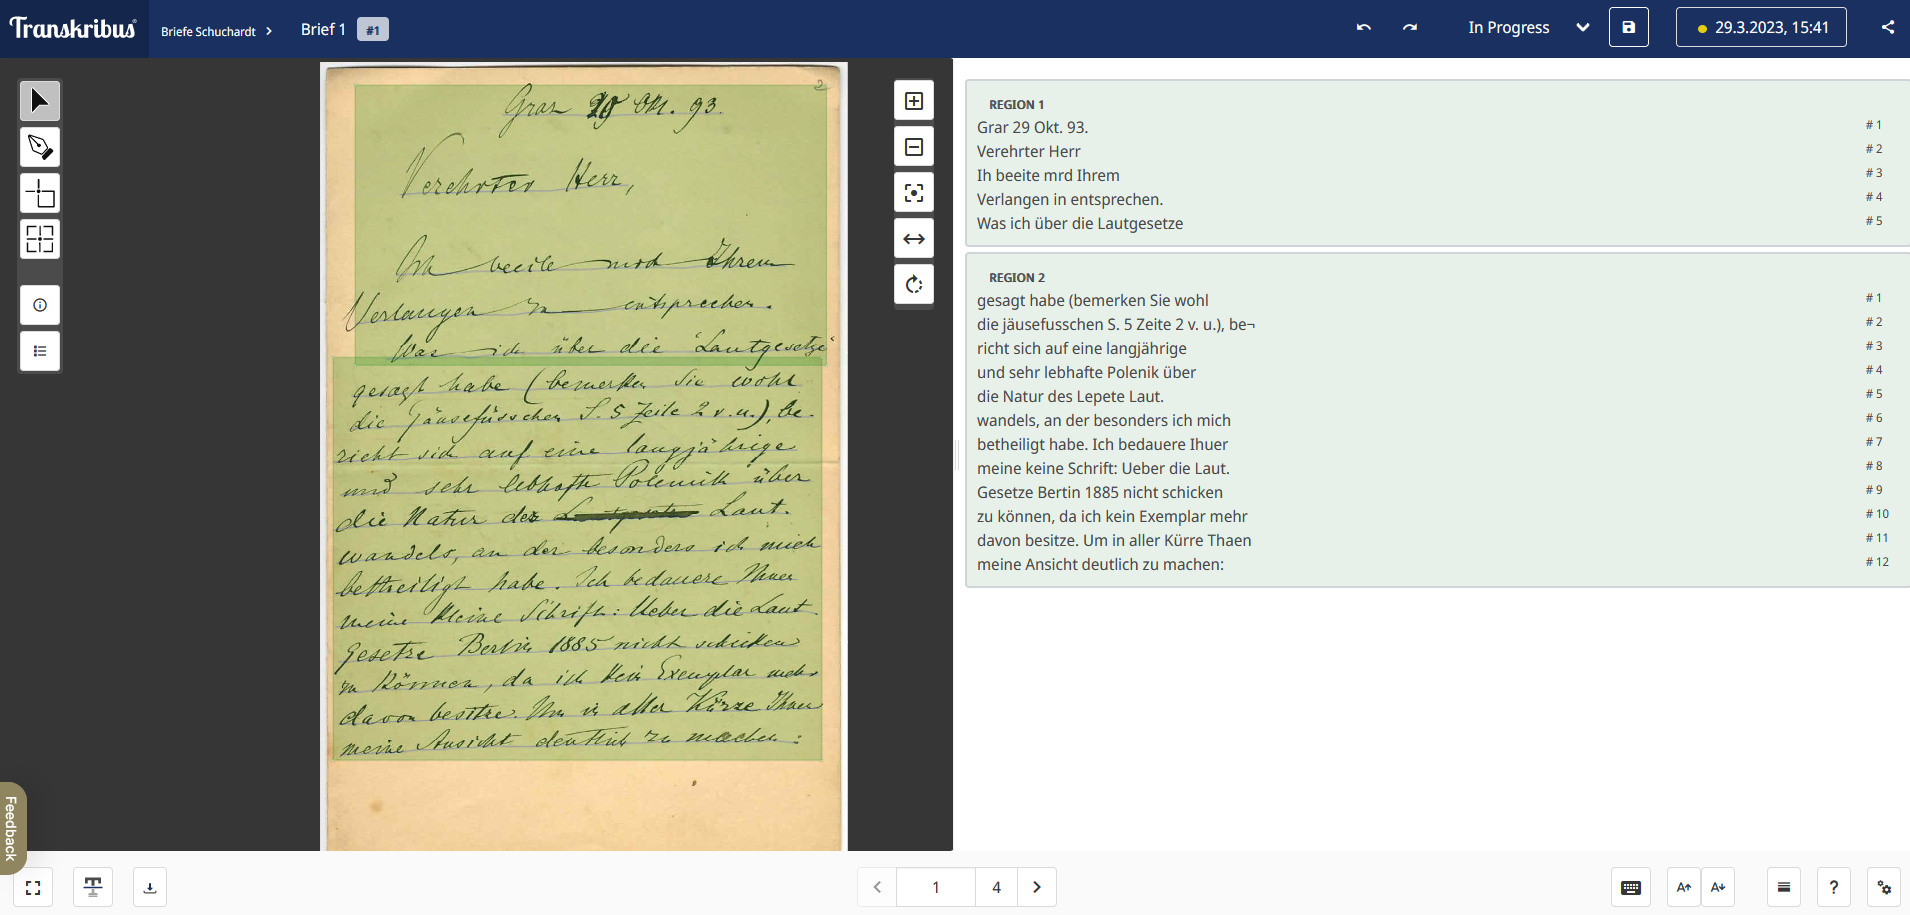 Transkribus
Briefe Schuchardt
Brief 1
#1
In Progress
29.3.2023, 15:41
2
Graz 29 Okt. 93.
Verehrter Herr,
Ich beeile mich Ihrem
Verlangen zu entsprechen.
Was ich über die 'Lautgesetze'
gesagt habe (bemerken Sie wohl
die Gänsefüsschen S. 5 Zeile 2 v. u.), be-
zieht sich auf eine langjährige
und sehr lebhafte Polemik über
die Natur des Laut-
wandels, an der besonders ich mich
betheiligt habe. Ich bedauere Ihnen
meine kleine Schrift: Ueber die Laut
gesetze Berlin 1885 nicht schicken
zu können, da ich kein Exemplar mehr
davon besitze. Um in aller Kürze Ihnen
meine Ansicht deutlich zu machen:
REGION 1
Grar 29 Okt. 93. #1
Verehrter Herr #2
Ih beeite mrd Ihrem #3
Verlangen in entsprechen. #4
Was ich über die Lautgesetze #5
REGION 2
gesagt habe (bemerken Sie wohl #1
die jäusefusschen S. 5 Zeite 2 v. u.), be¬ #2
richt sich auf eine langjährige #3
und sehr lebhafte Polenik über #4
die Natur des Lepete Laut. #5
wandels, an der besonders ich mich #6
betheiligt habe. Ich bedauere Ihuer #7
meine keine Schrift: Ueber die Laut. #8
Gesetze Bertin 1885 nicht schicken #9
zu können, da ich kein Exemplar mehr #10
davon besitze. Um in aller Kürre Thaen #11
meine Ansicht deutlich zu machen: #12
Feedback
1
4
A
A
?